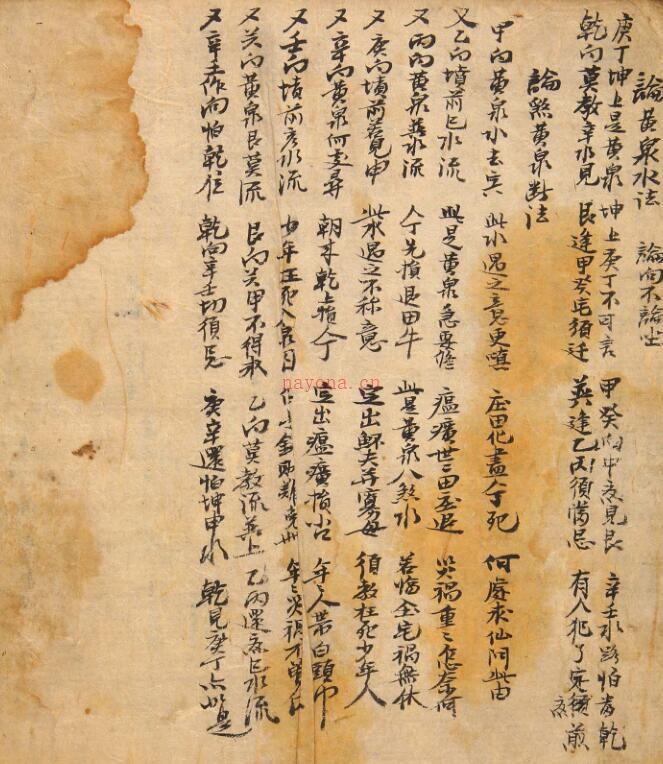 論黃泉水法 論向不論坐
庚丁坤上是黃泉 坤上庚丁不可言 甲癸向中衣見艮 辛壬水路怕當乾
乾向莫教辛水見 艮逢甲癸宅須迁 巽逢乙丙須當忌 有人犯了定傾
論煞黃泉斷法
甲向黃泉水去寅 此水遇之意更嗔 庄田化盡人死 何處求仙問此由
又乙向墳前巳水流 此是黃泉急要 瘟癀世世田退 災禍重重怎奈何
又丙向黃泉巽水流 人丁先損退田牛 此是黃泉八煞水 若悔全宅禍無休
又庚向墳前若見申 此水遇之不称意 定出鰥夫并寡母 須教枉死少年人
又辛向黃泉何處尋 朝來乾上損人丁 定出瘟癀損小口 年年人帶白頭巾
又壬向墳前亥水流 少年枉死入泉 年年災禍不曾
又癸向黃泉艮莫流 艮向癸甲不得求 乙向莫教流巽上 乙丙還麻巳水流
又辛壬作向怕乾位 乾向辛壬切須忌 庚辛還怕坤申水 乾見庚丁亦如是
nayona.cn